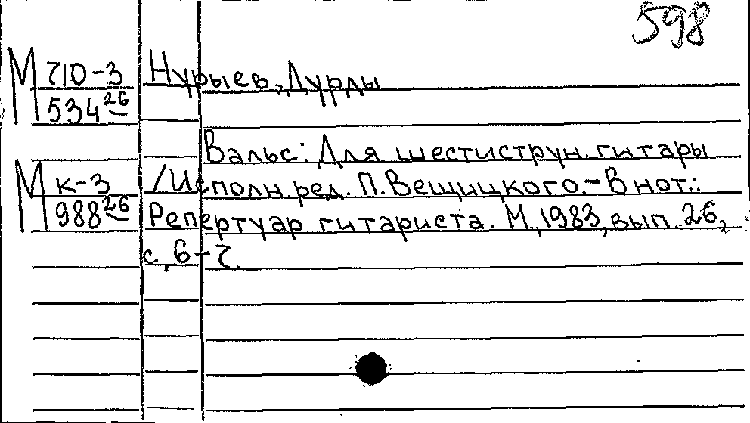 598
М 710-3 Нурыев, Дурды
534 26
Вальс: Для шестиструн. гитары
М к-3 /Исполн. ред. П. Вещицкого.-В нот.:
988 26 Репертуар гитариста. М., 1983, вып. 26,
с. 6-7.